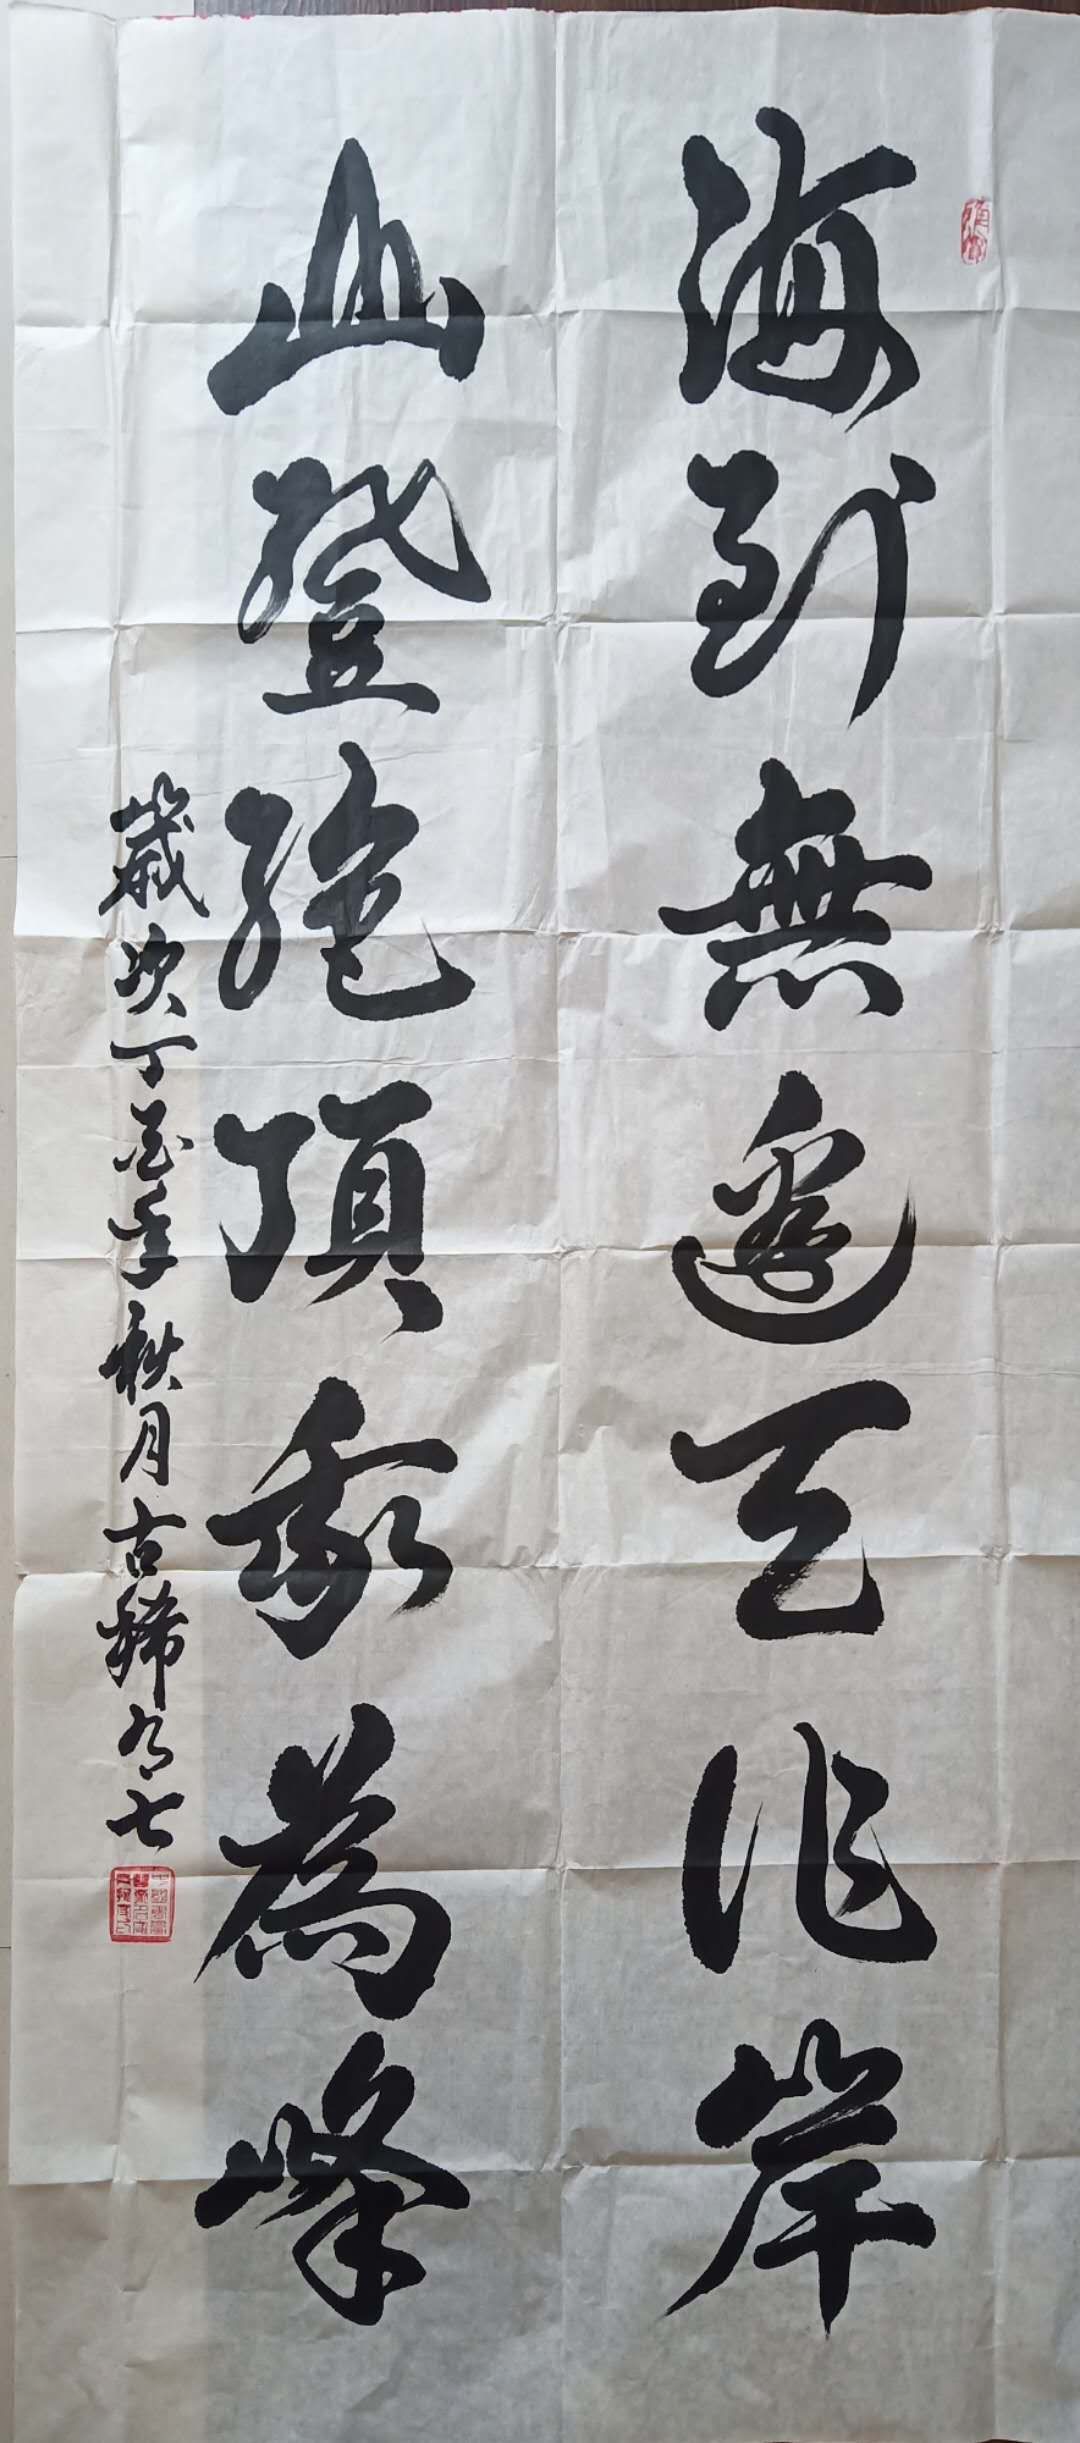 海到無邊天作岸
山登絶頂我為峰
歲次丁酉年秋月古稀有七